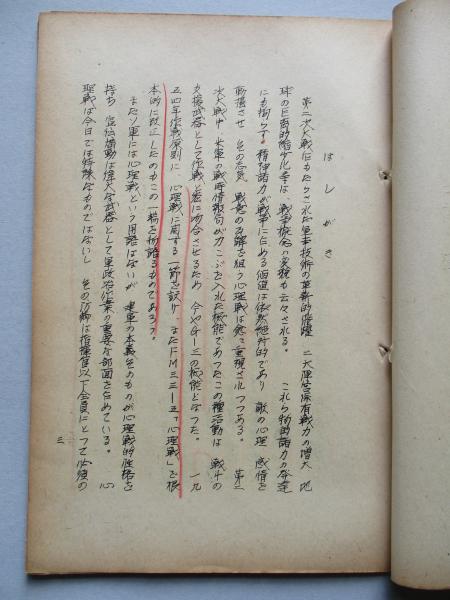 はしがき
第二次大戦にもたらされた軍事技術の革新的飛躍 二大陣営保有戦力の増大 地
球の巨視的縮少化等は、戦争概念の変貌も云々される。 これら物的諸力の発達
にも拘らず。精神諸力が戦争に占める価値は依然絶対的であり 敵の心理 感情を
動揺させ その志気 戦意の瓦解を狙う心理戦は愈々重視されつつある。 第二
次大戦中 米軍の戦時情報局が力こぶを入れた機能であったこの種活動は 戦斗の
支援武器として作戦と密に吻合させるため 今やG-三の機能となった。 一九
五四年作戦原則に 心理戦に関する一節を設け、またFM三三-五「心理戦」を根
本的に改正したのもこの一端を物語るものであろう。
またソ軍には心理戦という用語はないが 建軍の本義そのものが心理戦的性格を
持ち 宣伝煽動は偉大な武器として軍政治作業の重要な部面を占めている。 心
理戦は今日では特殊なものではないし その防衛は指揮官以下全員にとって必須の
三